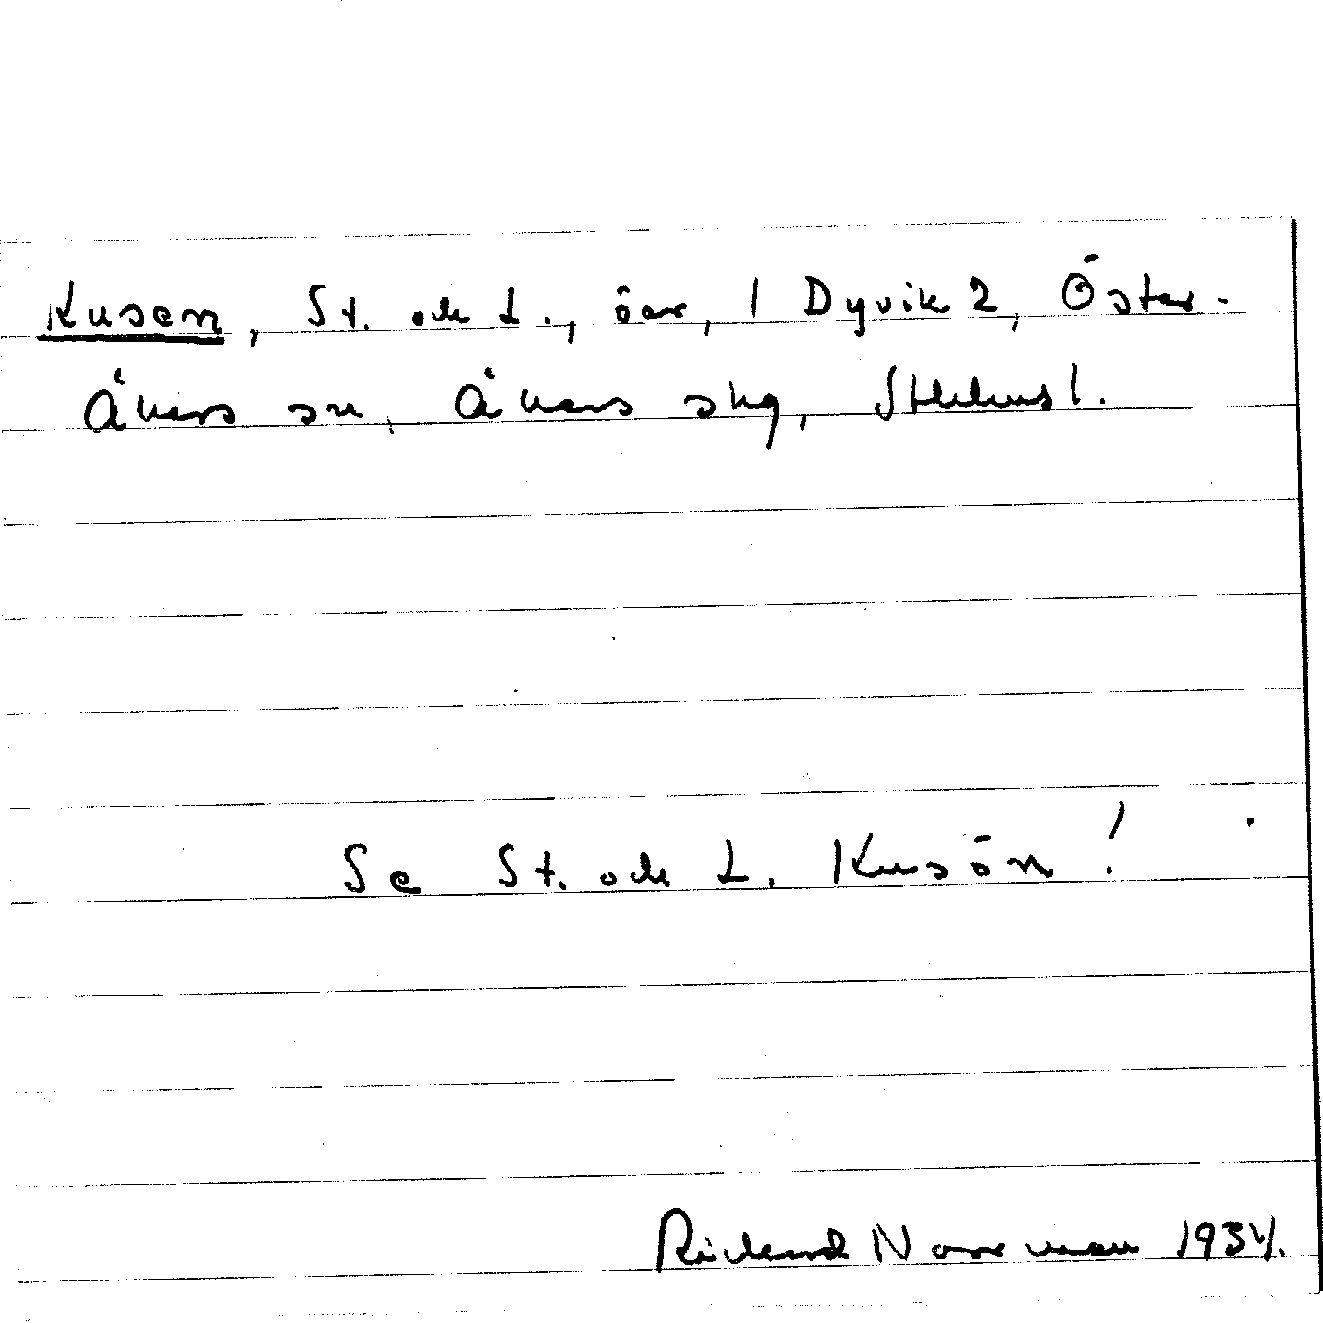 Kusen, St. och L., öar, 1 Dyvik 2, Öster-
Åkers sn, Åkers skg, Sthlms l.
Se St. och L. Kusön!
Rickard Norrman 1934.